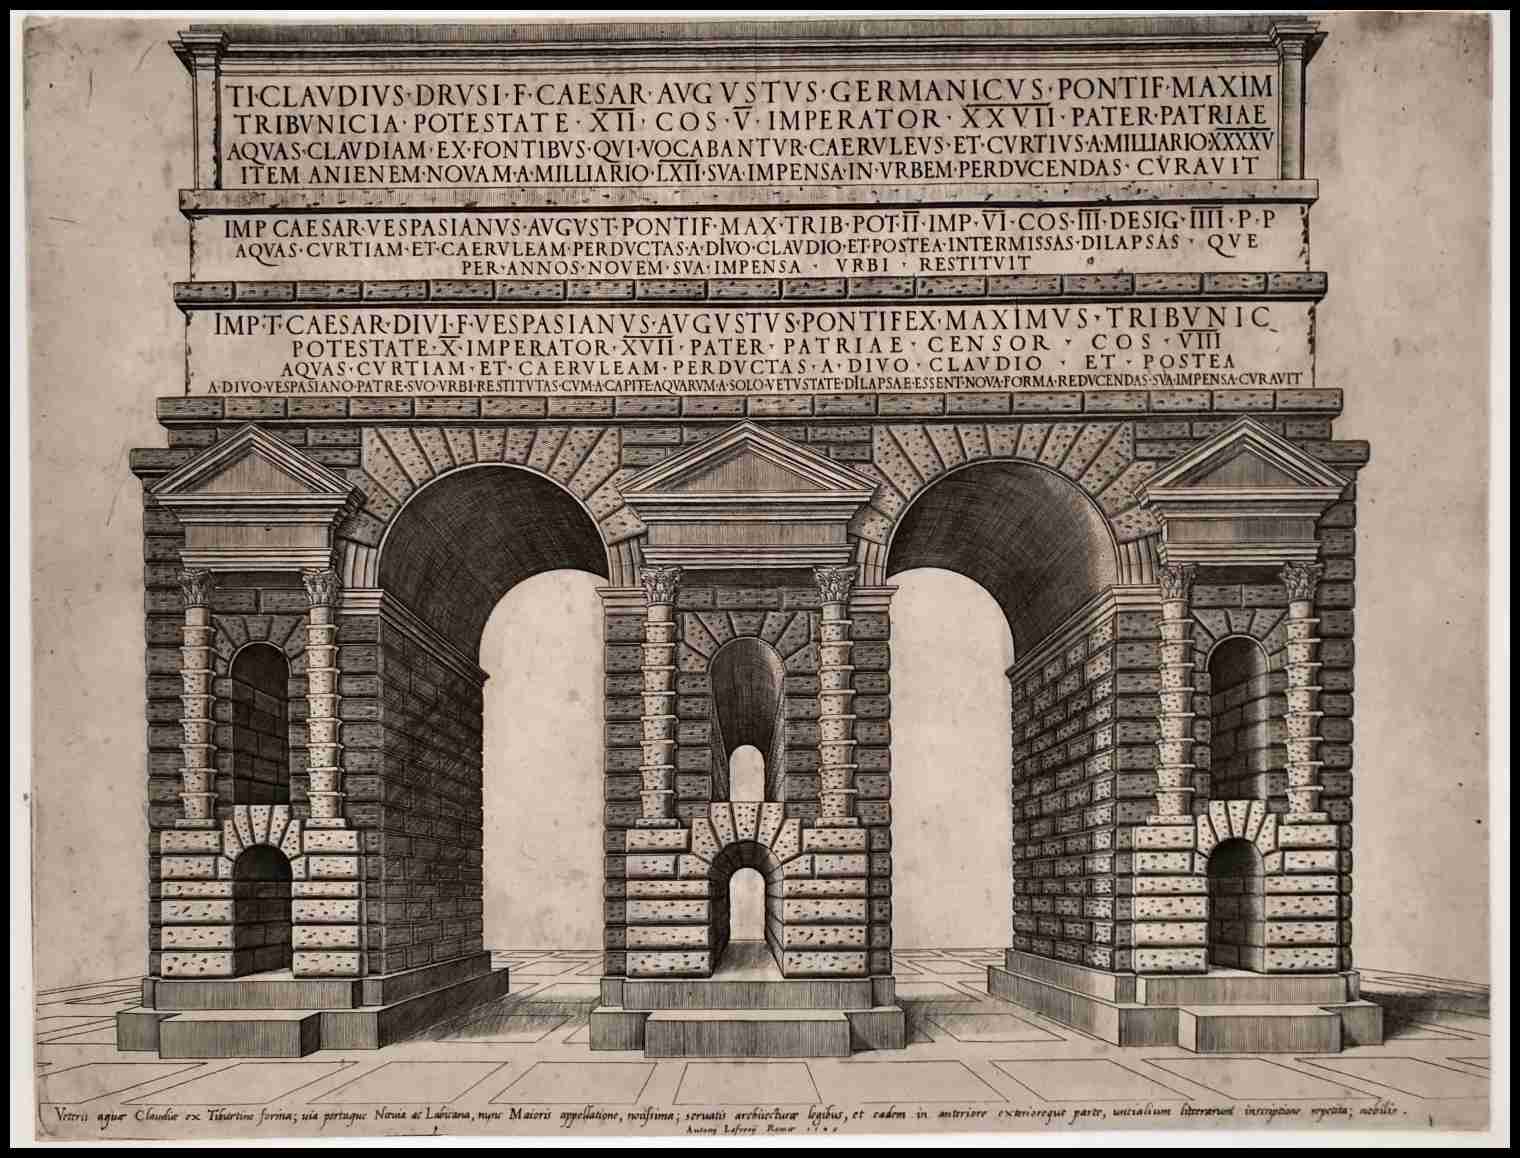 TI·CLAVDIVS·DRVSI·F·CAESAR·AVGVSTVS·GERMANICVS·PONTIF·MAXIM
TRIBVNICIA·POTESTATE·XII·COS·V·IMPERATOR·XXVII·PATER·PATRIAE
AQVAS·CLAVDIAM·EX·FONTIBVS·QVI·VOCABANTVR·CAERVLEVS·ET·CVRTIVS·A·MILLIARIO·XXXXV
ITEM ANIENEM·NOVAM·A·MILLIARIO·LXII·SVA·IMPENSA·IN·VRBEM·PERDVCENDAS·CVRAVIT
IMP CAESAR·VESPASIANVS·AVGVST·PONTIF·MAX·TRIB·POT·II·IMP·VI·COS·III·DESIG·IIII·P·P
AQVAS·CVRTIAM·ET·CAERVLEAM·PERDVCTAS·A·DIVO·CLAVDIO·ET·POSTEA·INTERMISSAS·DILAPSAS·QVE
PER·ANNOS·NOVEM·SVA·IMPENSA·VRBI·RESTITVIT
IMP·T·CAESAR·DIVI·F·VESPASIANVS·AVGVSTVS·PONTIFEX·MAXIMVS·TRIBVNIC
POTESTATE·X·IMPERATOR·XVII·PATER·PATRIAE·CENSOR·COS·VIII
AQVAS·CVRTIAM·ET·CAERVLEAM·PERDVCTAS·A·DIVO·CLAVDIO·ET·POSTEA
A·DIVO·VESPASIANO·PATRE·SVO·VRBI·RESTITVTAS·CVM·A·CAPITE·AQVARVM·A·SOLO·VETVSTATE·DILAPSAE·ESSENT·NOVA·FORMA·REDVCENDAS·SVA·IMPENSA·CVRAVIT
Veteris aquæ Claudiæ ex Tiburtino forma; uia portaque Nœuia ac Labicana, nunc Maioris appellatione, notissima; seruatis architecturæ legibus, et eadem in anteriore exterioreque parte, uncialium litterarum inscriptione repetita; nobilis.
Antonij Lafrerij Romæ